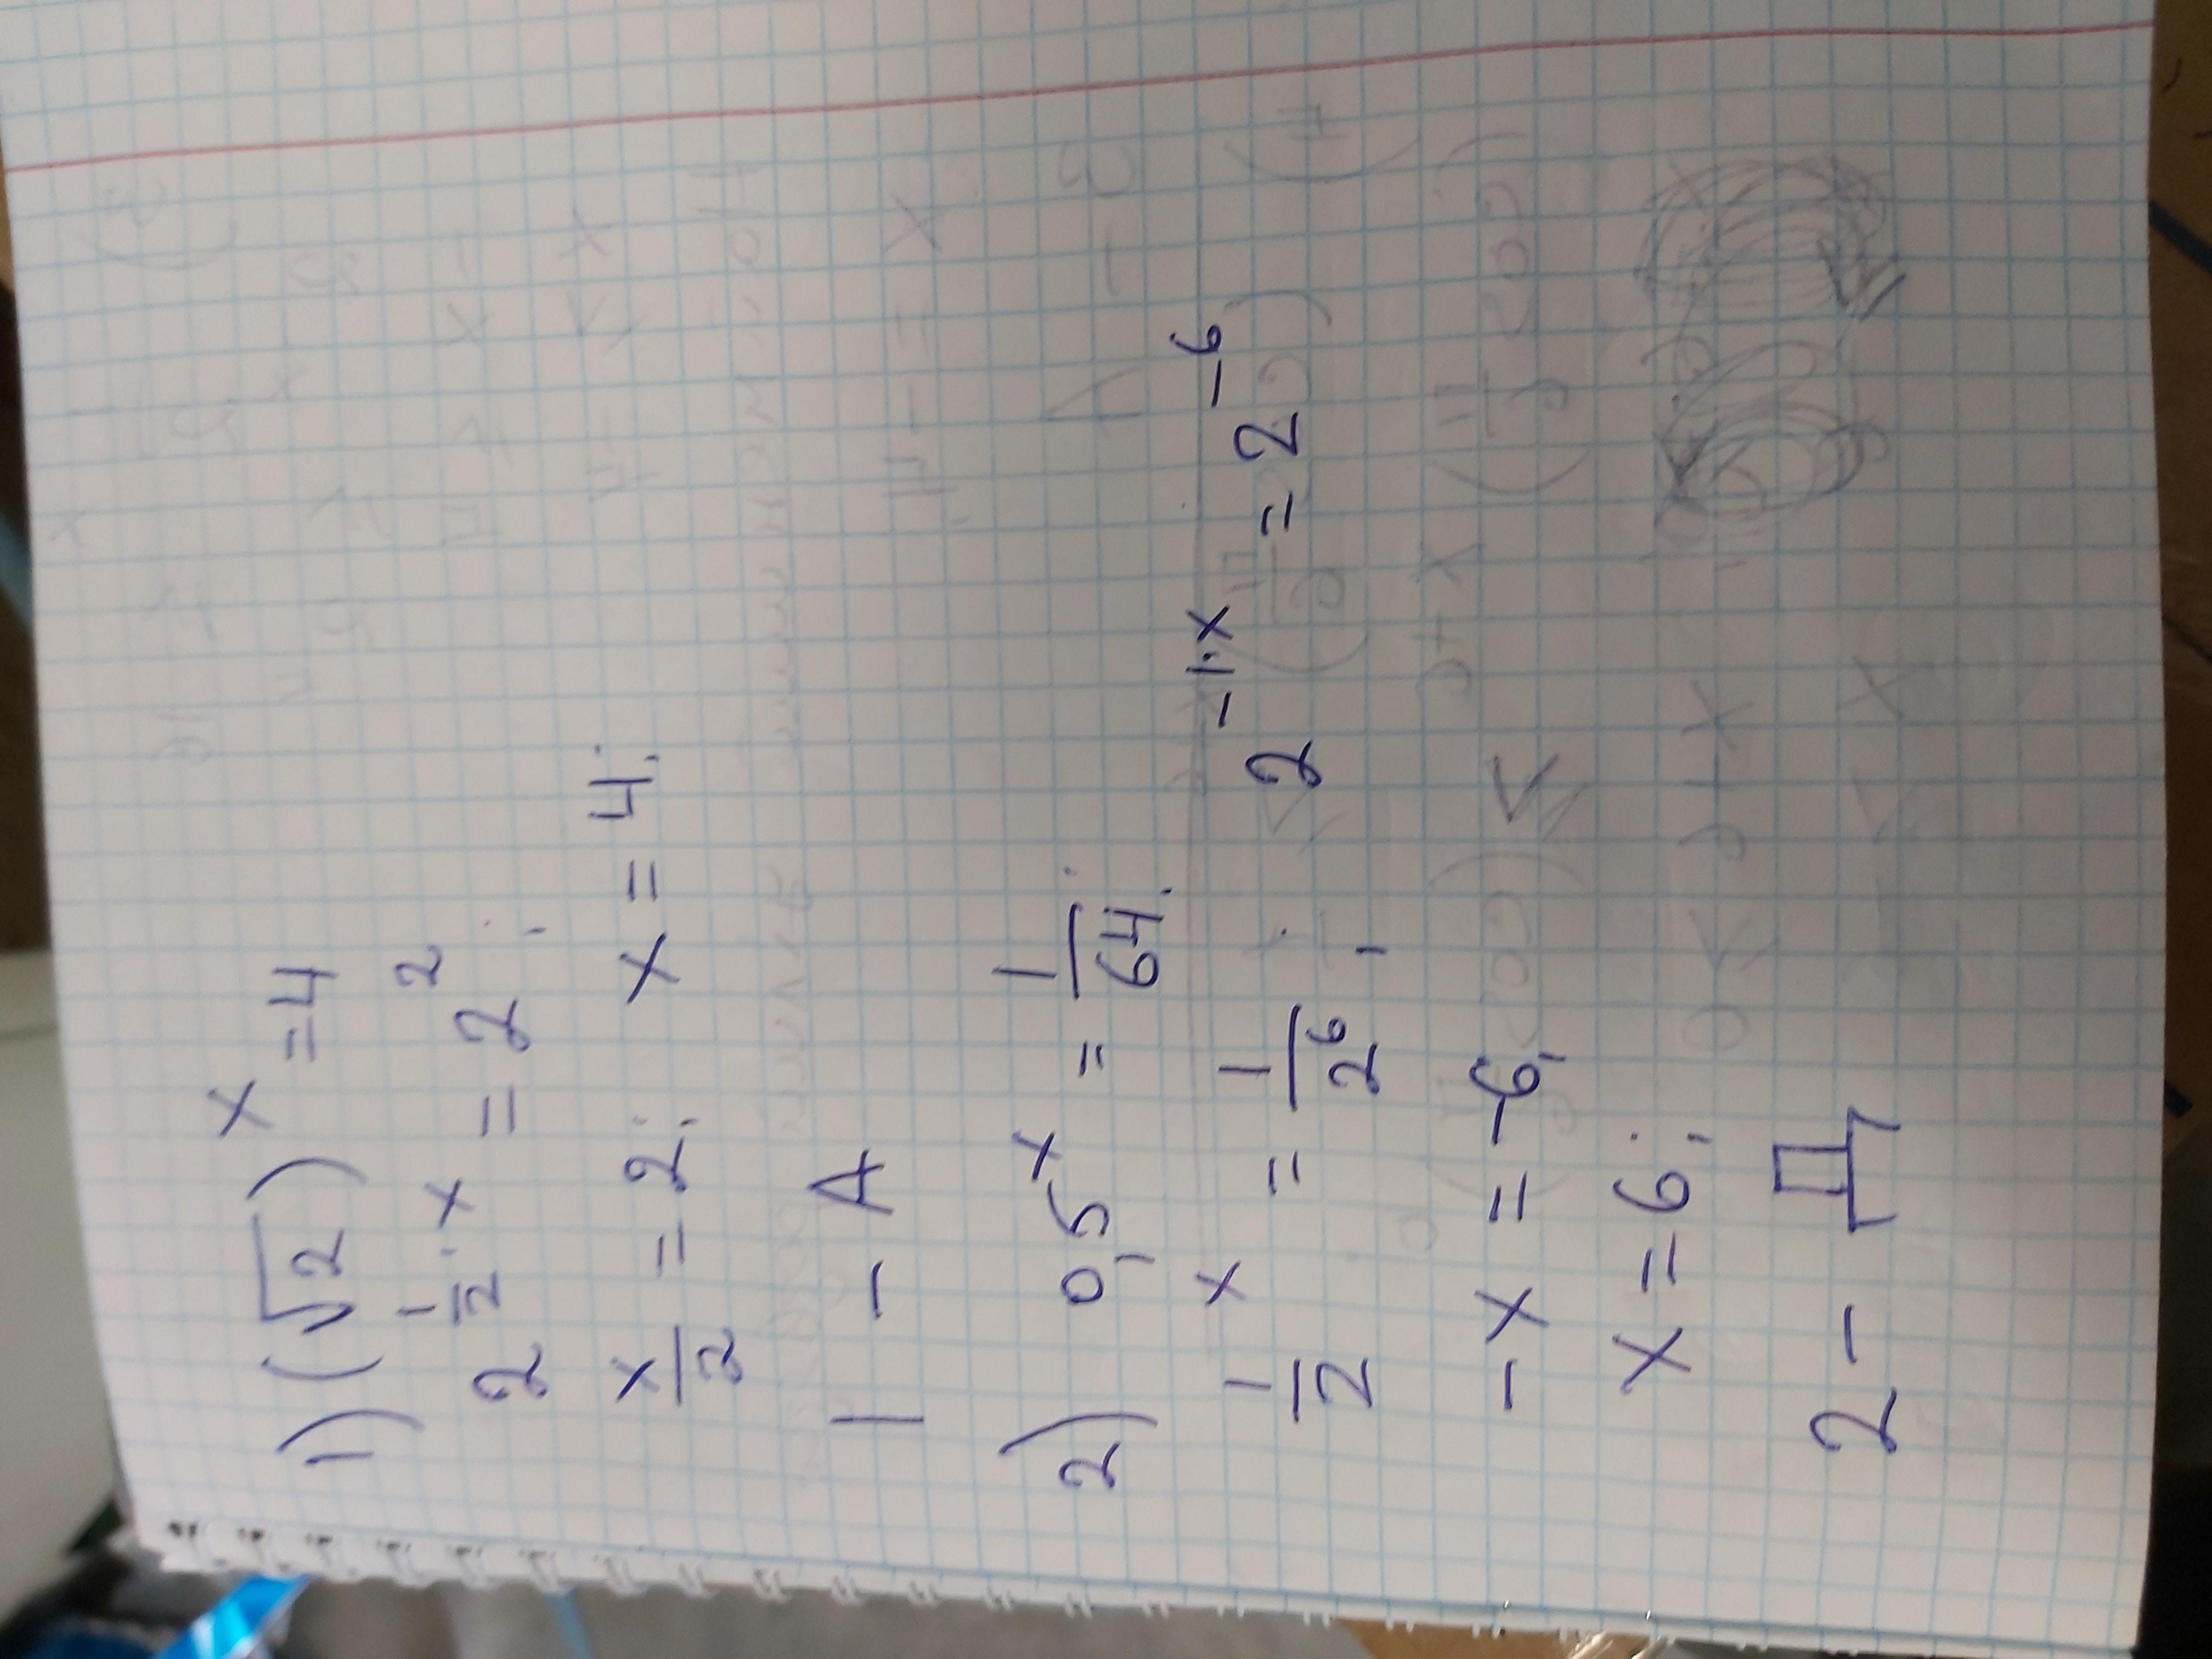 1) (√2)^x = 4
2^(1/2 · x) = 2^2;
x/2 = 2; x = 4;
1 – А
2) 0,5^x = 1/64;
1/2^x = 1/2^6; 2^(-1·x) = 2^(-6)
-x = -6;
x = 6;
2 – Д